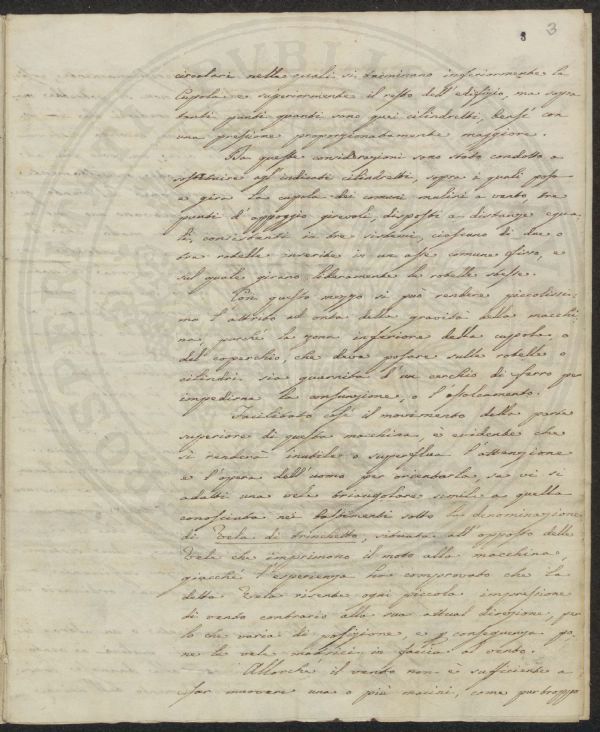 3
circolari nelle quali si terminano inferiormente la
Cupola e superiormente il resto dell'edifizio, ma sopra
tanti punti quanti sono quei cilindretti, bensì con
una pressione proporzionatamente maggiore.
Da queste considerazioni sono stato condotto a
sostituire agl'indicati cilindretti, sopra i quali posa
e gira la cupola dei comuni mulini a vento, tre
punti d'appoggio girevoli, disposti a distanze egua-
li, consistenti in tre sistemi, ciascuno di due o
tre rotelle inserite in un asse comune fisso, e
sul quale girano liberamente le rotelle stesse.
Con questo mezzo si può rendere piccolissi-
mo l'attrito ad onta della gravità della macchi-
na, purché la zona inferiore della cuppola, o
del coperchio, che deve posare sulle rotelle o
cilindri sia guarnita d'un cerchio di ferro per
impedirne la consunzione, o l'
Facilitato così il movimento della parte
superiore di questa macchina è evidente che
si renderà inutile o superflua l'attenzione
e l'opera dell'uomo per orientarla, se vi si
adatti una vela triangolare simile a quella
conosciuta nei bastimenti sotto la denominazione
di Vela di trinchetto, situata all'opposto delle
Vele che imprimono il moto alla macchina,
giacché l'esperienza ha comprovato che la
detta Vela risente ogni piccola impressione
di vento contrario alla sua attual direzione, per
lo che varia di posizione, e p conseguenza po-
ne le vele motrici in faccia al vento.
Allorché il vento non è sufficiente a
far muovere una o più macini, come purtroppo